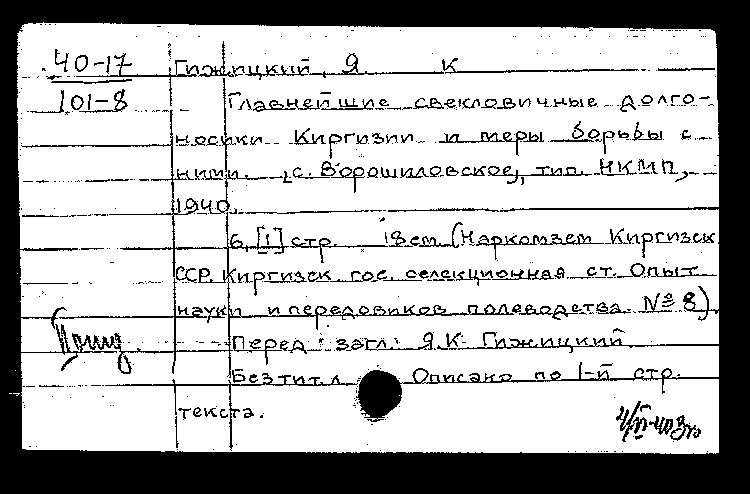 40-17 Гижицкий, Я К
101-8 Главнейшие свекловичные долго-
носики Киргизии и меры борьбы с
ними. [с. Ворошиловское], тип. НКМП,
1940.
6, [1] стр. 18 см. (Наркомзем Киргизск.
ССР. Киргизск. гос. селекционная ст. Опыт
науки и передовиков полеводства. № 8).
Перед загл.: Я.К. Гижицкий.
Без тит. л. Описано по 1-й стр.
текста.